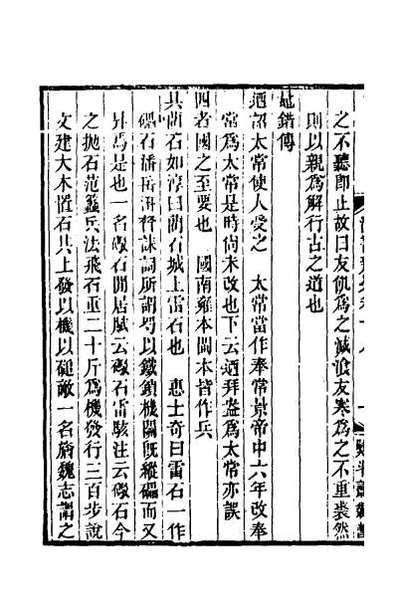 之不聽即止故曰友飢為之減飡友寒為之不重裘然
則以親為解行古之道也
鼂錯傳
迺詔太常使人受之　太常當作奉常景帝中六年改奉
常為太常是時尚未改也下云迺拜盎為太常亦誤
四者國之至要也　國南雍本閩本皆作兵
具藺石如淳曰藺石城上雷石也　惠士奇曰雷石一作
礧石潘岳汧督誄詞所謂罥以鐵鎖機關既縱礧而又
升焉是也一名礮石閒居賦云礮石雷駭注云礮石今
之拋石范蠡兵法飛石重二十斤為機發行三百步說
文建大木置石其上發以機以磓敵一名旝魏志謂之